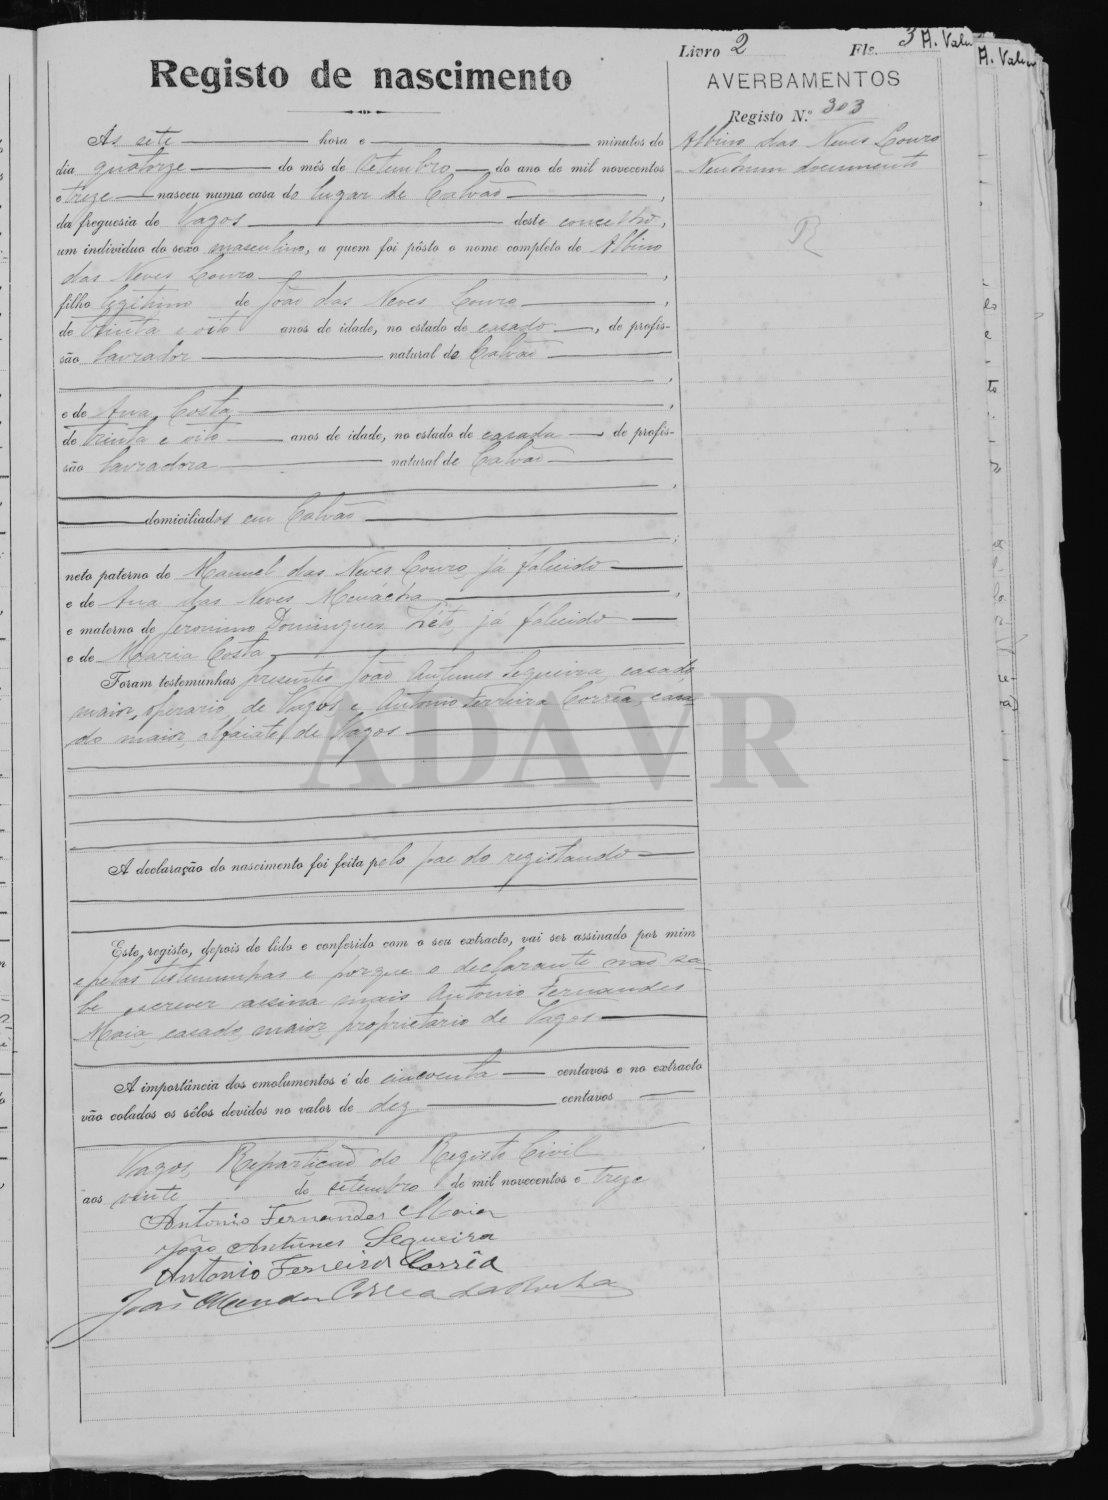 Livro 2 Fls. 3 A. Valu
A. Valu
Registo de nascimento
AVERBAMENTOS
Registo N.º 303
Albino das Neves Louro
Nenhum documento
R
Ás sete hora e minutos do
dia quatorze do mês de Setembro do ano de mil novecentos
e treze nasceu numa casa do lugar de Calvão,
da freguesia de Vagos deste concelho,
um individuo do sexo masculino, a quem foi pôsto o nome completo de Albino
das Neves Louro,
filho legitimo de João das Neves Louro,
de trinta e oito anos de idade, no estado de casado, de profis-
são lavrador natural de Calvão
,
e de Ana Costa,
de trinta e oito anos de idade, no estado de casada, de profis-
são lavradora natural de Calvão
,
domiciliados em Calvão
;
neto paterno de Manuel das Neves Louro, já falicido
e de Ana das Neves,
e materno de Jeronimo Domingues, já falicido
e de Maria Costa
Foram testemunhas presentes João Antunes Sequeira, casado
maior, operario, de Vagos, e Antonio Ferreira Corrêa, casa-
do maior, alfaiate, de Vagos
ADAVR
A declaração do nascimento foi feita pelo pae do registando
Este registo, depois de lido e conferido com o seu extracto, vai ser assinado por mim
e pelas testemunhas e porque o declarante não sa-
be escrever assina mais Antonio Fernandes
Maia, casado, maior, proprietario de Vagos
A importância dos emolumentos é de cincoenta centavos e no extracto
vão colados os sêlos devidos no valor de dez centavos
Vagos, Repartição do Registo Civil
aos vinte de setembro de mil novecentos e treze
Antonio Fernandes Maia
João Antunes Sequeira
Antonio Ferreira Corrêa
João Mendes Correa da Rocha